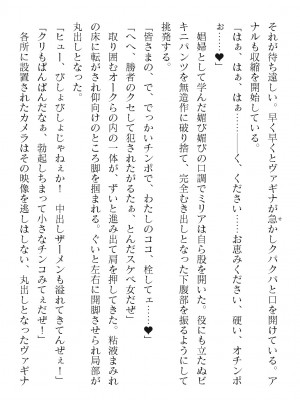 それが待ち遠しい。早く早くとヴァギナが急かしクパクパと口を開けている。ア
ナルも収縮を開始している。
「はぁ、はぁ、はぁ………く、ください……お恵みください……硬い、オチンポ
お❤」
娼婦として学んだ媚び媚びの口調でミリアは自ら股を開いた。役にも立たぬビ
キニパンツを無造作に破り捨て、完全むき出しとなった下腹部を振るようにして
挑発する。
「皆さまの、で、でっかいチンポで、わたしのココ、栓してェ……❤」
「へへ、勝者のクセして犯されたがるたぁ、とんだスケベ女だぜ」
取り囲むオークらの内の一体が、ずいと進み出て肩を押してきた。粘液まみれ
の床に転がされ仰向けのところ脚を掴まれる。ぐいと左右に開脚させられ局部が
丸出しとなった。
「ヒュー、びしょびしょじゃねぇか！　中出しザーメンも溢れてきてんぜぇ！」
「クリもぱんぱんだなぁ、勃起しちまって小さなチンコみてぇだぜ！」
各所に設置されたカメラはその映像を逃しはしない、丸出しとなったヴァギナ